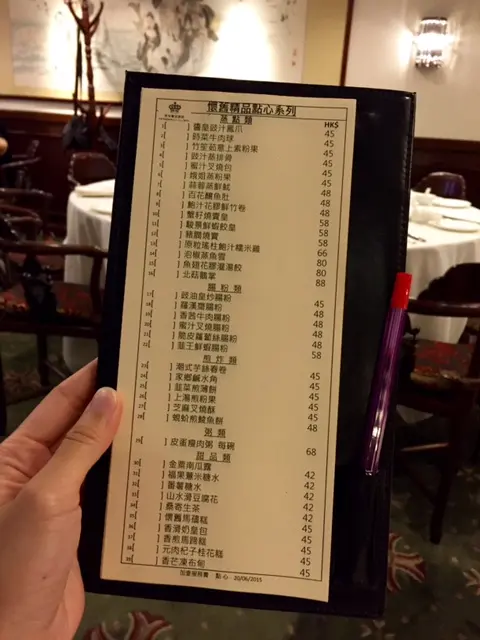 懷舊精品點心系列
蒸點類 HK$
醬皇豉汁鳳爪 45
時菜牛肉球 45
竹笙茹意上素粉果 45
豉汁蒸排骨 45
蜜汁叉燒包 45
娥姐蒸粉果 45
蒜蓉蒸鮮魷 48
百花釀魚肚 48
鮑汁花膠鮮竹卷 48
蟹籽燒賣皇 58
駿景鮮蝦餃皇 58
豬膶燒賣 58
原粒瑤柱鮑汁糯米雞 66
泡椒蒸魚雲 80
魚翅花膠灌湯餃 80
北菇鵝掌 88
腸粉類
豉油皇炒腸粉 45
羅漢齋腸粉 48
香茜牛肉腸粉 48
蜜汁叉燒腸粉 48
脆皮蘿蔔絲腸粉 48
韮王鮮蝦腸粉 58
煎炸類
潮式芋絲春卷 45
家鄉鹹水角 45
韮菜煎薄餅 45
上湯煎粉果 45
芝麻叉燒酥 45
蜆蚧煎鯪魚餅 48
粥類
皮蛋瘦肉粥 每碗 68
甜品類
金粟南瓜露 42
福果薏米糖水 42
番薯糖水 42
山水滑豆腐花 42
桑寄生茶 42
懷舊馬蹄糕 45
香滑奶皇包 45
香煎馬蹄糕 45
元肉杞子桂花糕 45
香芒凍布甸 45
加壹服務費 點心 - 20/06/2015